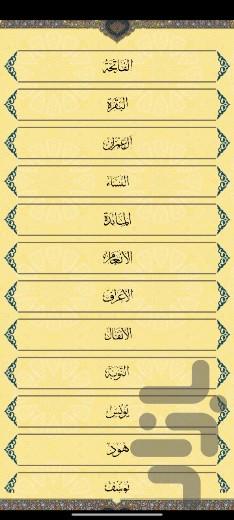 الفَاتِحَة
البَقَرَة
آل عِمرَان
النِّسَاء
المَائدة
الأنعَام
الأعرَاف
الأنفَال
التوبَة
يُونس
هُود
يُوسُف
بازار